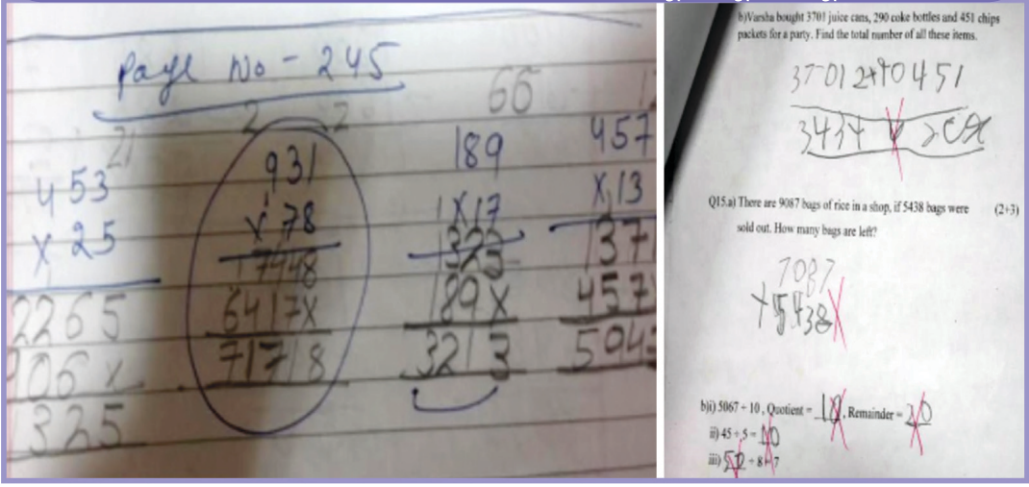 Page No - 245
21
2 2
66
453
x 25
2265
906 x
1325
931
x 78
7448
6417x
71718
189
x 17
1323
189x
3213
457
x 13
137
457
594
b)Varsha bought 3701 juice cans, 290 coke bottles and 451 chips
packets for a party. Find the total number of all these items.
3434
Q15.a) There are 9087 bags of rice in a shop, if 5438 bags were (2+3)
sold out. How many bags are left?
7087
+5438
b)i) 5067 ÷ 10 , Quotient = 10 , Remainder = 20
ii) 45 ÷ 5 = 10
iii) ÷ 8 = 7